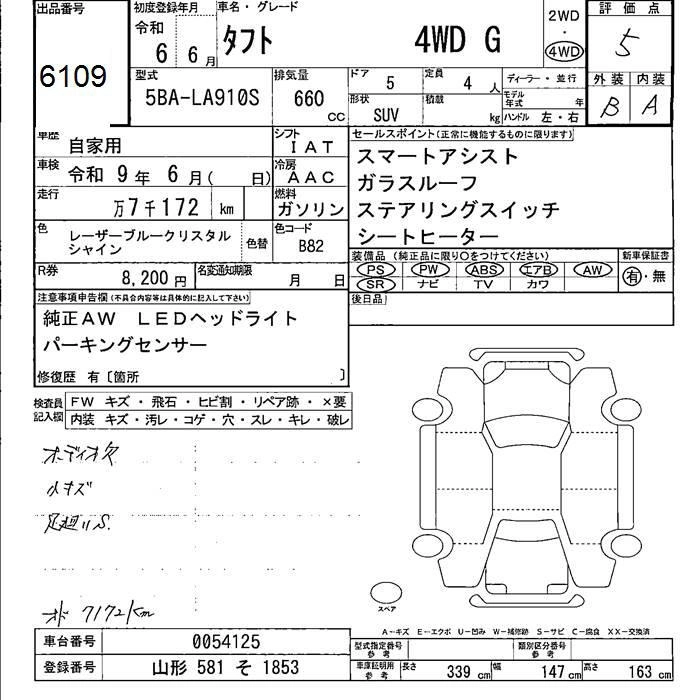 出品番号
6109
初度登録年月
令和
6 6月
車名・グレード
タフト 4WD G
2WD
・
4WD
評価点
5
外装 内装
B A
型式
5BA-LA910S
排気量
660
cc
ドア 5
定員 4 人
形状 SUV
積載 kg
ディーラー・並行
モデル年式 年
ハンドル 左・右
車歴 自家用
シフト IAT
車検 令和 9年 6月( 日)
冷房 AAC
走行 万7千172 km
燃料 ガソリン
色 レーザーブルークリスタル
シャイン
色替
色コード B82
R券 8,200円
名変通知期限 月 日
セールスポイント(正常に機能するものに限ります)
スマートアシスト
ガラスルーフ
ステアリングスイッチ
シートヒーター
装備品 (純正品に限り〇をつけてください)
PS PW ABS エアB AW
SR ナビ TV カワ
新車保証書
有・無
後日品
注意事項申告欄(不具合内容等は具体的に記入して下さい)
純正AW LEDヘッドライト
パーキングセンサー
修復歴 有〔箇所 〕
検査員記入欄
FW キズ・飛石・ヒビ割・リペア跡・×要
内装 キズ・汚レ・コゲ・穴・スレ・キレ・破レ
オーディオ欠
小キズ
足廻りS.
オド 7172km
スペア
A-キズ E-エクボ U-凹み W-補修跡 S-サビ C-腐食 XX-交換済
車台番号 0054125
登録番号 山形 581 そ 1853
型式指定番号 参考
類別区分番号 参考
車庫証明用 参考
長さ 339 cm 幅 147 cm 高さ 163 cm